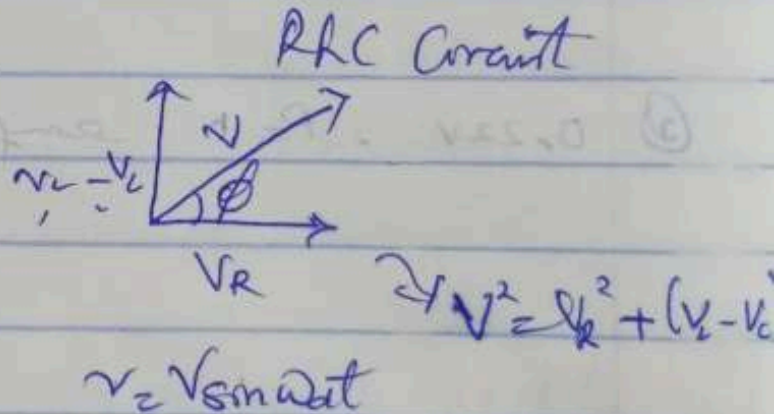 RLC Circuit
V
V_L - V_C
φ
V_R
V² = V_R² + (V_L - V_C)
v = V sin ωt